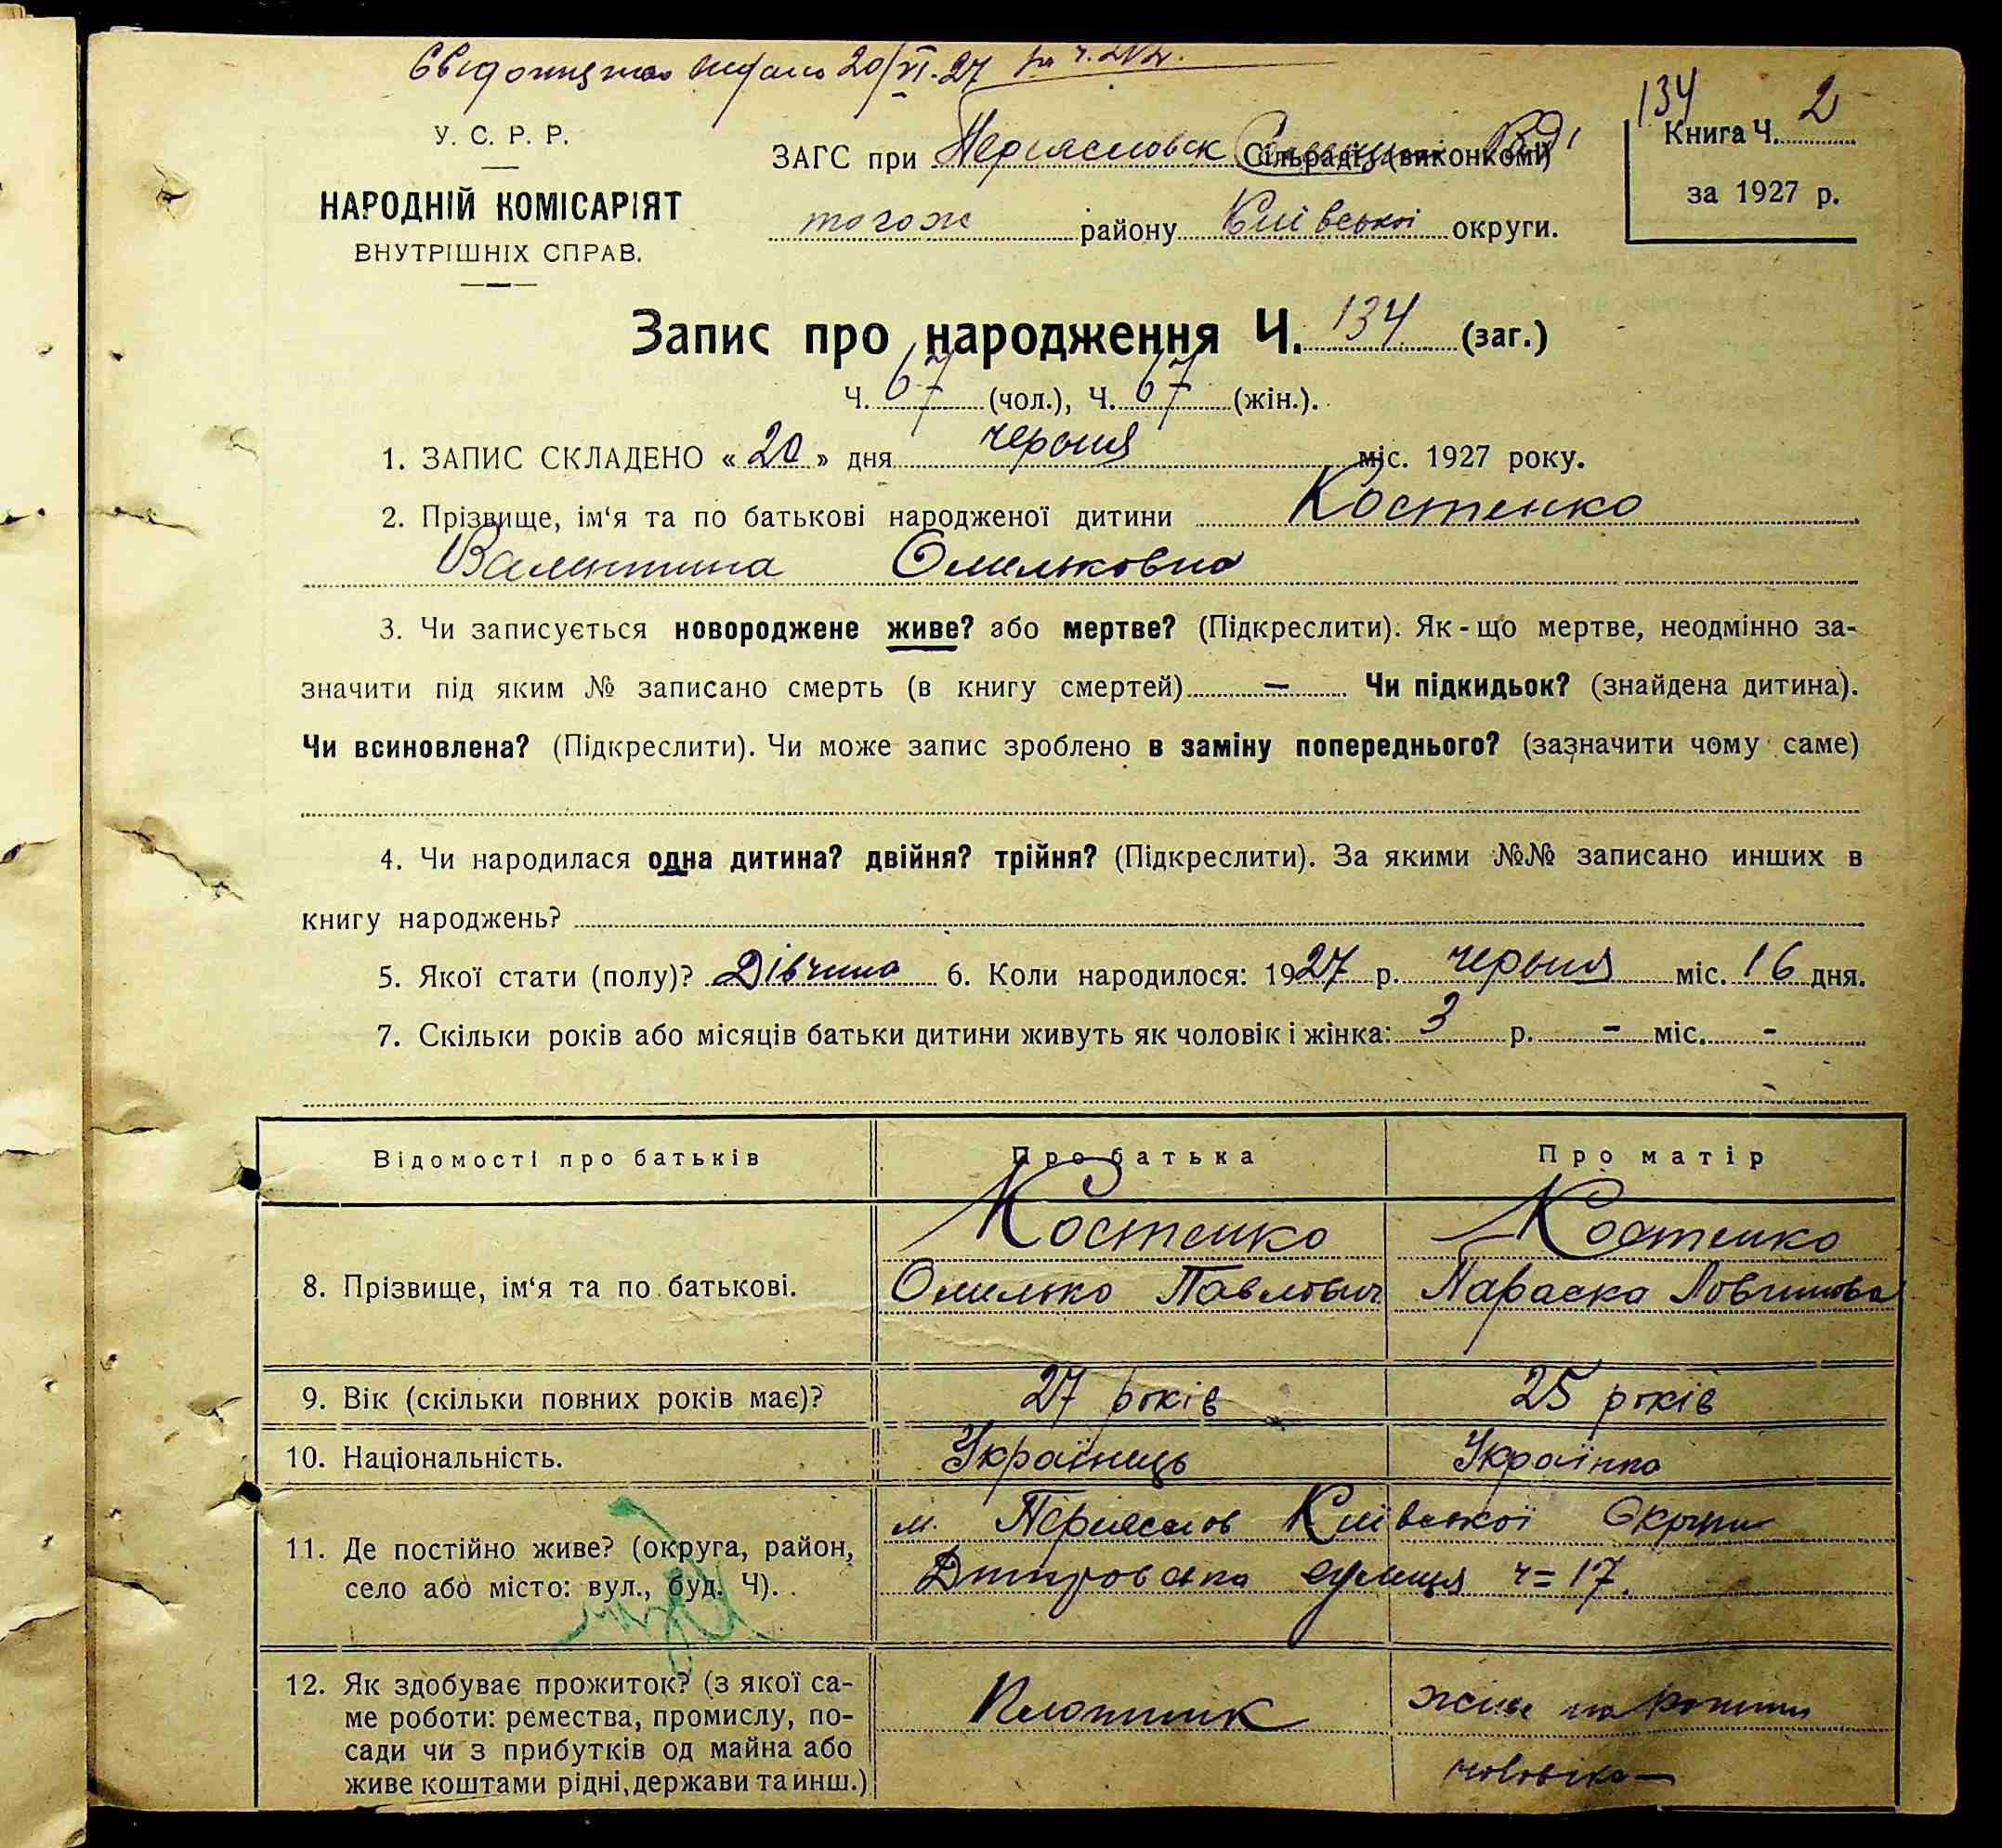 Свідоцтво видано 20/VI-27 за ч. 212.
134
У. С. Р. Р.
НАРОДНІЙ КОМІСАРІЯТ
ВНУТРІШНІХ СПРАВ.
ЗАГС при Переяславск Сільраді, (виконкомі)
тогож району Київської округи.
Книга Ч. 2
за 1927 р.
Запис про народження Ч. 134. (заг.)
Ч. 67 (чол.), Ч. 67 (жін.).
1. ЗАПИС СКЛАДЕНО « 20 » дня червня міс. 1927 року.
2. Прізвище, ім‘я та по батькові народженої дитини Костенко
Валентина Омельковна
3. Чи записується новороджене живе? або мертве? (Підкреслити). Як-що мертве, неодмінно за-
значити під яким № записано смерть (в книгу смертей) – Чи підкидьок? (знайдена дитина).
Чи всиновлена? (Підкреслити). Чи може запис зроблено в заміну попереднього? (зазначити чому саме)
4. Чи народилася одна дитина? двійня? трійня? (Підкреслити). За якими №№ записано инших в
книгу народжень?
5. Якої стати (полу)? Дівчина 6. Коли народилося: 1927 р. червня міс. 16 дня.
7. Скільки років або місяців батьки дитини живуть як чоловік і жінка: 3 р. – міс. –
Відомості про батьків Про батька Про матір
8. Прізвище, ім‘я та по батькові. Костенко Костенко
Омелько Павлович Параска
9. Вік (скільки повних років має)? 27 років 25 років
10. Національність. Українець Українка
11. Де постійно живе? (округа, район,
село або місто: вул., буд. Ч).
м. Переяслов Київської Округи
вулиця ч = 17.
12. Як здобуває прожиток? (з якої са-
ме роботи: ремества, промислу, по-
сади чи з прибутків од майна або
живе коштами рідні, держави та инш.)
Плотник
живе на кошти
чоловіка –